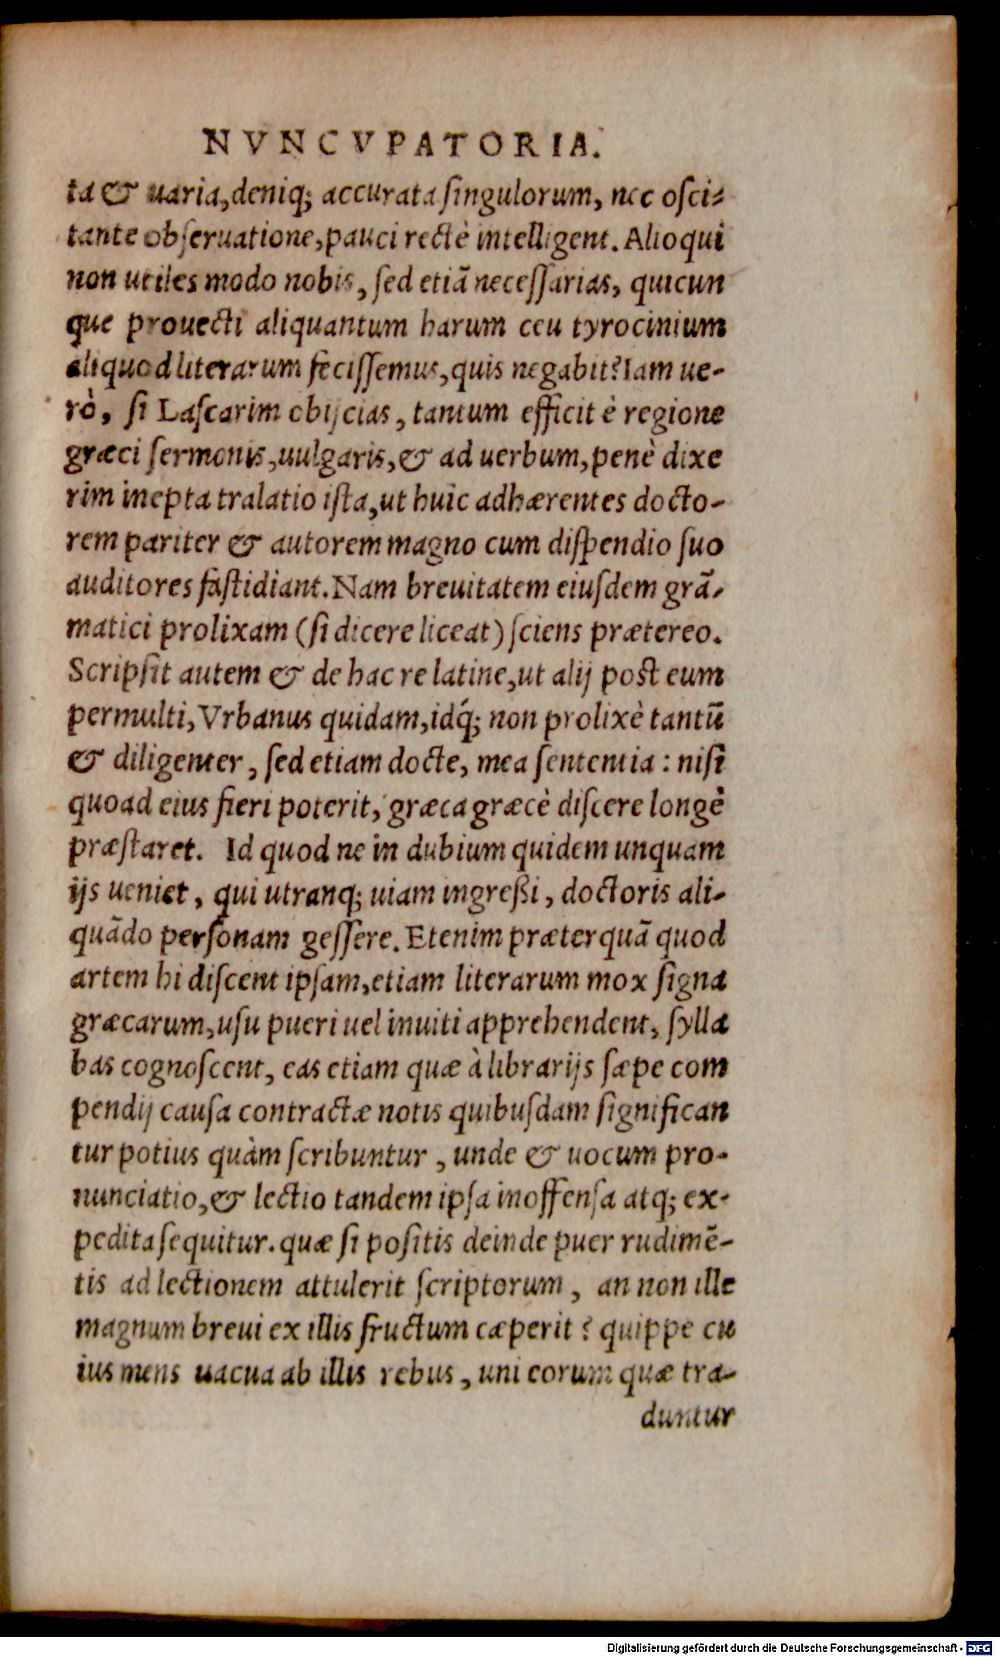 NVNCVPATORIA.
ta & uaria, deniq; accurata singulorum, nec osci-
tante obseruatione, pauci rectè intelligent. Alioqui
non utiles modo nobis, sed etiã necessarias, quicun
que prouecti aliquantum harum ceu tyrocinium
aliquod literarum fecissemus, quis negabit? Iam ue-
rò, si Lascarim obijcias, tantum efficit è regione
græci sermonis, uulgaris, & ad uerbum, penè dixe
rim inepta tralatio ista, ut huic adhærentes docto-
rem pariter & autorem magno cum dispendio suo
auditores fastidiant. Nam breuitatem eiusdem grã-
matici prolixam (si dicere liceat) sciens prætereo.
Scripsit autem & de hac re latine, ut alij post eum
permulti, Vrbanus quidam, idq́; non prolixè tantũ
& diligenter, sed etiam docte, mea sententia: nisi
quoad eius fieri poterit, græca græcè discere longè
præstaret. Id quod ne in dubium quidem unquam
ijs ueniet, qui utranq; uiam ingreßi, doctoris ali-
quãdo personam gessere. Etenim præterquã quod
artem hi discent ipsam, etiam literarum mox signa
græcarum, usu pueri uel inuiti apprehendent, sylla
bas cognoscent, eas etiam quæ à librarijs sæpe com
pendij causa contractæ notis quibusdam significan
tur potius quàm scribuntur, unde & uocum pro-
nunciatio, & lectio tandem ipsa inoffensa atq; ex-
pedita sequitur. quæ si positis deinde puer rudimẽ-
tis ad lectionem attulerit scriptorum, an non ille
magnum breui ex illis fructum cæperit? quippe cu
ius mens uacua ab illis rebus, uni eorum quæ tra-
duntur
Digitalisierung gefördert durch die Deutsche Forschungsgemeinschaft - DFG